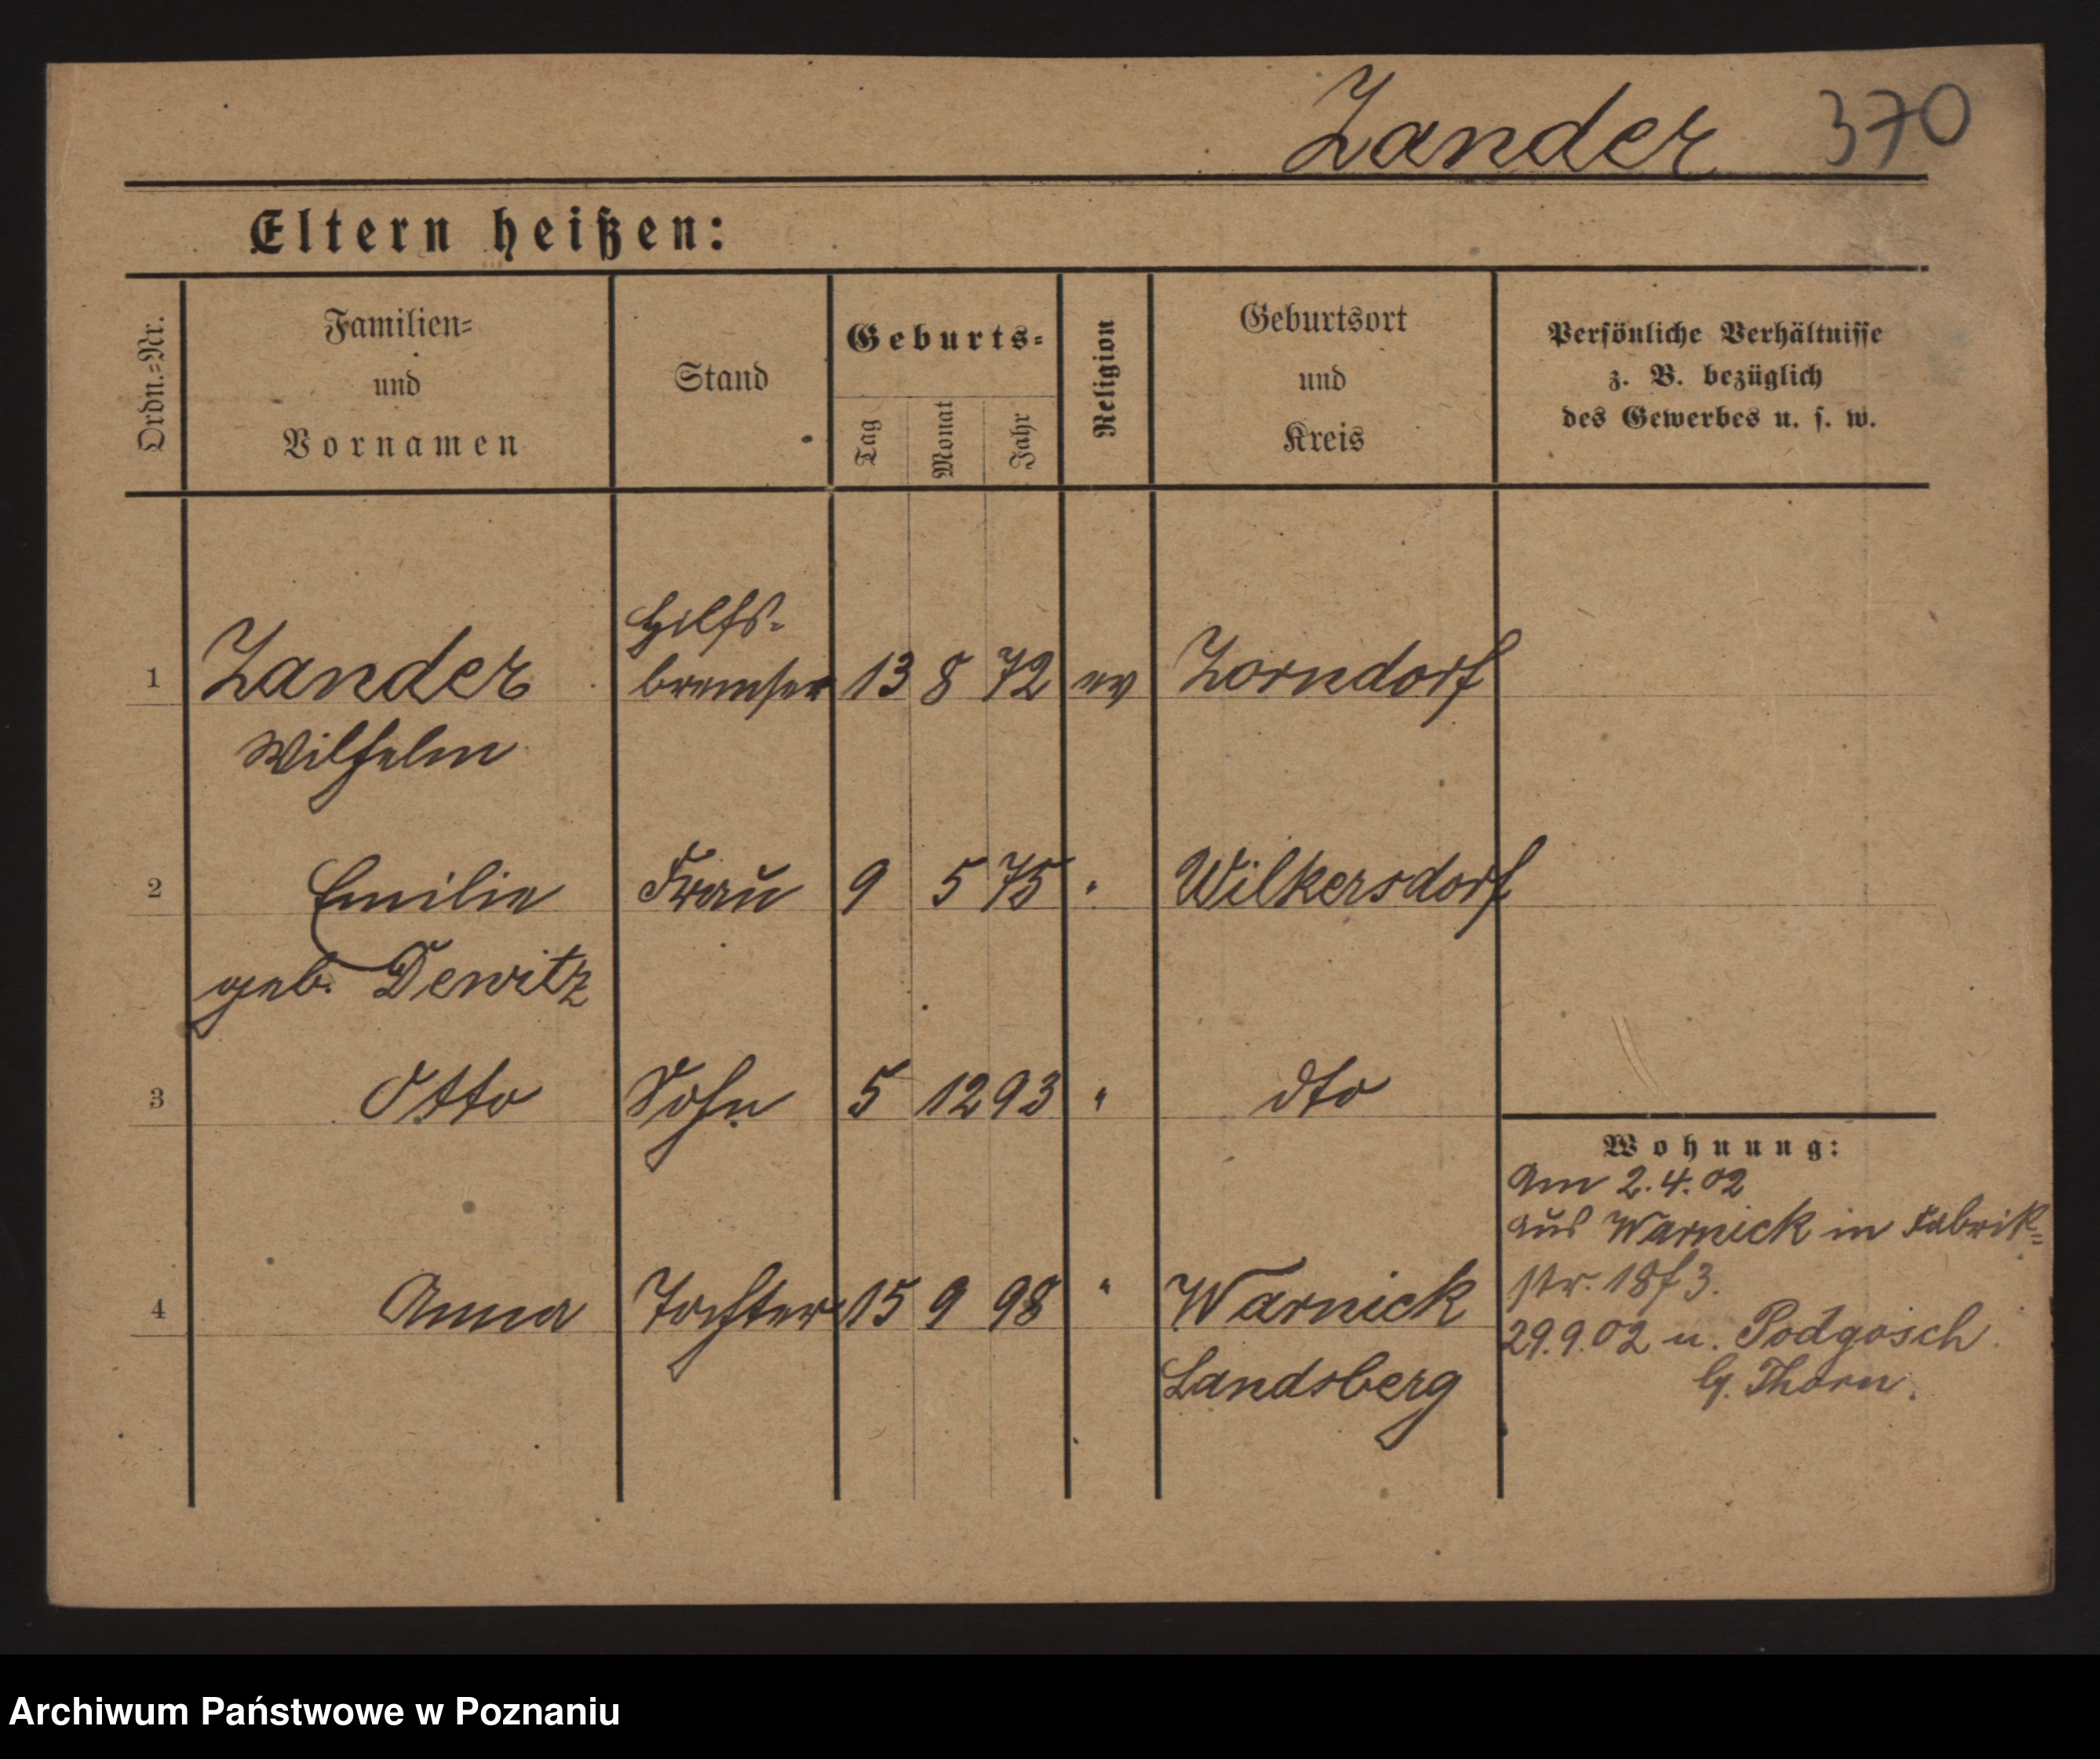 Zander 370
Eltern heißen:
Ordn.=Nr.
Familien=
und
Vornamen
Stand
Geburts=
Tag
Monat
Jahr
Religion
Geburtsort
und
Kreis
Persönliche Verhältnisse
z. B. bezüglich
des Gewerbes u. s. w.
Hilfs-
1 Zander bremser 13 8 72 ev Zorndorf
Wilhelm
2 Emilie Frau 9 5 75 " Wilkersdorf
geb. Dewitz
3 Otto Sohn 5 12 93 " dto
4 Anna Tochter 15 9 98 " Warnick
Landsberg
Wohnung:
Am 2.4.02
aus Warnick in Fabrik=
str. 18 f 3.
29.9.02 n. Podgosch
b/. Thorn.
Archiwum Państwowe w Poznaniu